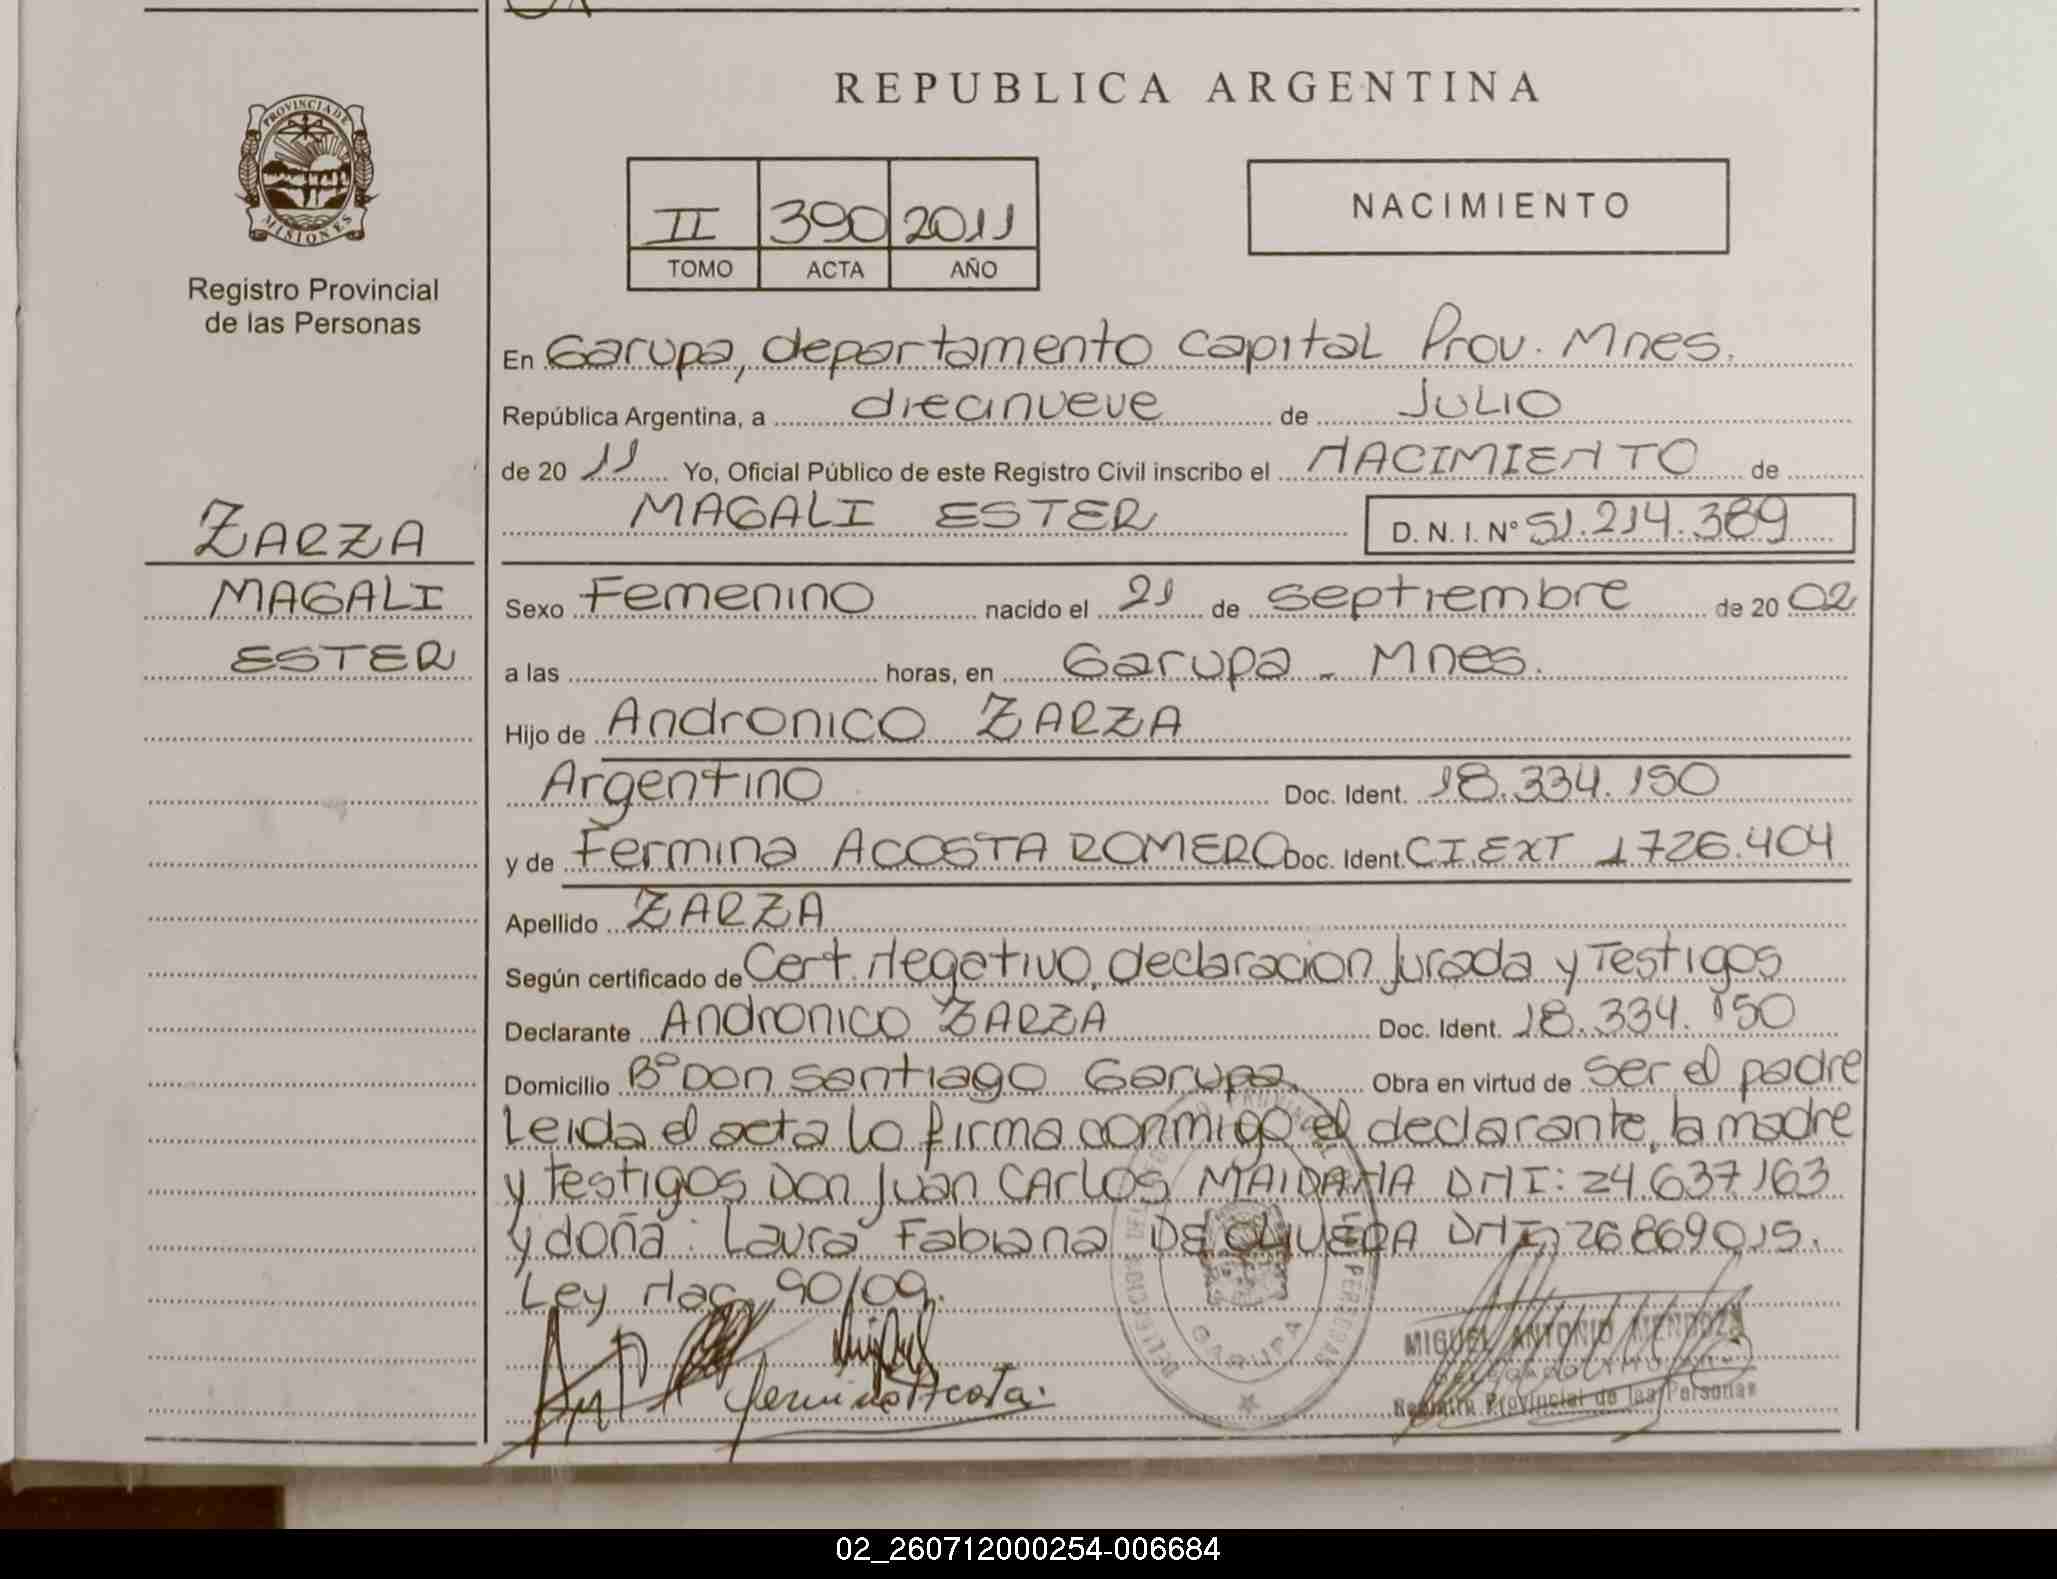 REPUBLICA ARGENTINA
PROVINCIA DE
MISIONES
Registro Provincial
de las Personas
II 390 2011
TOMO ACTA AÑO
NACIMIENTO
En Garupa, departamento Capital Prov. Mnes.
República Argentina, a diecinueve de JULIO
de 20 11 Yo, Oficial Público de este Registro Civil inscribo el NACIMIENTO de
MAGALI ESTER D. N. I. Nº 51.214.389
ZARZA
MAGALI
ESTER
Sexo Femenino nacido el 21 de septiembre de 20 02
a las horas, en Garupa - Mnes.
Hijo de Andronico ZARZA
Argentino Doc. Ident. 18.334.150
y de Fermina ACOSTA ROMERO Doc. Ident. CI.EXT 1726.404
Apellido ZARZA
Según certificado de Cert. Negativo, declaracion Jurada y Testigos
Declarante Andronico ZARZA Doc. Ident. 18.334.150
Domicilio Bº Don Santiago Garupa. Obra en virtud de ser el padre
Leida el acta lo firma conmigo el declarante, la madre
y testigos Don Juan CARLOS MAIDANA DNI: 24.637163
y doña: Laura Fabiana DE OLIVERA DNI: 26869015.
Ley Nac. 90/09.
Fermina Acosta.
GARUPA
MIGUEL ANTONIO MENDOZA
Registro Provincial de las Personas
02_260712000254-006684